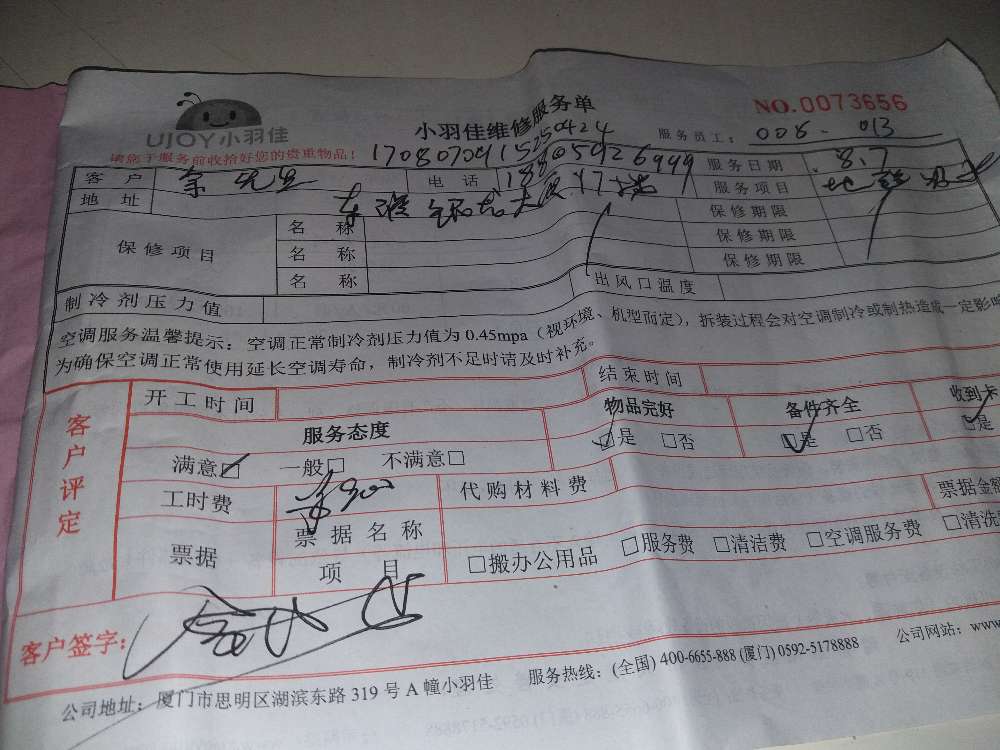 UJOY小羽佳
小羽佳维修服务单
NO.0073656
请您于服务前收拾好您的贵重物品！
17080709115250424
服务员工：008-013
客户 余先生 电话 18805926999 服务日期 8.7
地址 大厦17 服务项目
保修项目 名称 保修期限
名称 保修期限
名称 保修期限
制冷剂压力值 出风口温度
空调服务温馨提示：空调正常制冷剂压力值为0.45mpa（视环境、机型而定），拆装过程会对空调制冷或制热造成一定影响
为确保空调正常使用延长空调寿命，制冷剂不足时请及时补充。
客户评定
开工时间 结束时间
服务态度 物品完好 备件齐全 收到卡
满意☑ 一般□ 不满意□ ☑是 □否 ☑是 □否 ☑是
工时费 900 代购材料费 票据金额
票据 票据名称
项目 □搬办公用品 □服务费 □清洁费 □空调服务费 □清洗
客户签字：
公司地址：厦门市思明区湖滨东路319号A幢小羽佳 服务热线：(全国) 400-6655-888 (厦门) 0592-5178888 公司网站：www.